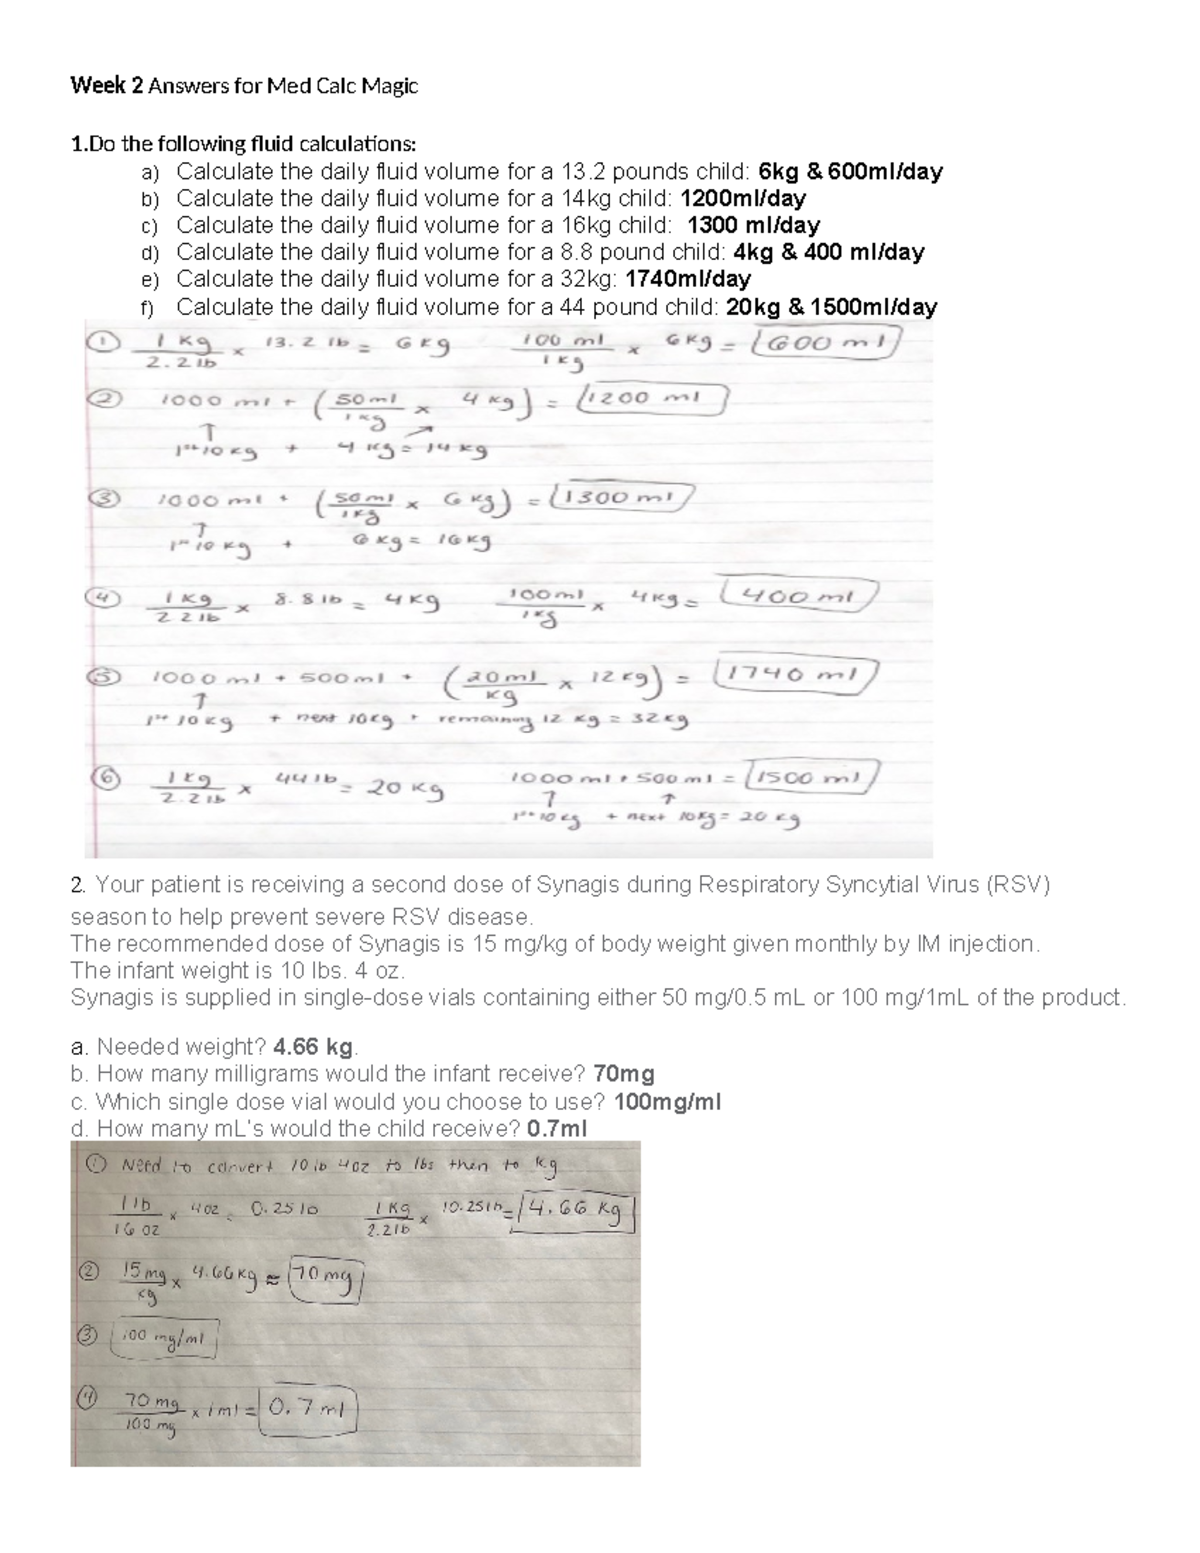 Week 2 Answers for Med Calc Magic
1.Do the following fluid calculations:
a) Calculate the daily fluid volume for a 13.2 pounds child: 6kg & 600ml/day
b) Calculate the daily fluid volume for a 14kg child: 1200ml/day
c) Calculate the daily fluid volume for a 16kg child: 1300 ml/day
d) Calculate the daily fluid volume for a 8.8 pound child: 4kg & 400 ml/day
e) Calculate the daily fluid volume for a 32kg: 1740ml/day
f) Calculate the daily fluid volume for a 44 pound child: 20kg & 1500ml/day
① 1 kg / 2.2 lb × 13.2 lb = 6 kg 100 ml / 1 kg × 6 kg = 600 ml
② 1000 ml + (50 ml / 1 kg × 4 kg) = 1200 ml
↑ ↗
1st 10 kg + 4 kg = 14 kg
③ 1000 ml + (50 ml / 1 kg × 6 kg) = 1300 ml
↑
1st 10 kg + 6 kg = 16 kg
④ 1 kg / 2.2 lb × 8.8 lb = 4 kg 100 ml / 1 kg × 4 kg = 400 ml
⑤ 1000 ml + 500 ml + (20 ml / kg × 12 kg) = 1740 ml
↑
1st 10 kg + next 10 kg + remaining 12 kg = 32 kg
⑥ 1 kg / 2.2 lb × 44 lb = 20 kg 1000 ml + 500 ml = 1500 ml
↑ ↑
1st 10 kg + next 10 kg = 20 kg
2. Your patient is receiving a second dose of Synagis during Respiratory Syncytial Virus (RSV)
season to help prevent severe RSV disease.
The recommended dose of Synagis is 15 mg/kg of body weight given monthly by IM injection.
The infant weight is 10 lbs. 4 oz.
Synagis is supplied in single-dose vials containing either 50 mg/0.5 mL or 100 mg/1mL of the product.
a. Needed weight? 4.66 kg.
b. How many milligrams would the infant receive? 70mg
c. Which single dose vial would you choose to use? 100mg/ml
d. How many mL's would the child receive? 0.7ml
① Need to convert 10 lb 4 oz to lbs then to kg
1 lb / 16 oz × 4 oz = 0.25 lb 1 kg / 2.2 lb × 10.25 lb = 4.66 kg
② 15 mg / kg × 4.66 kg ≈ 70 mg
③ 100 mg/ml
④ 70 mg / 100 mg × 1 ml = 0.7 ml